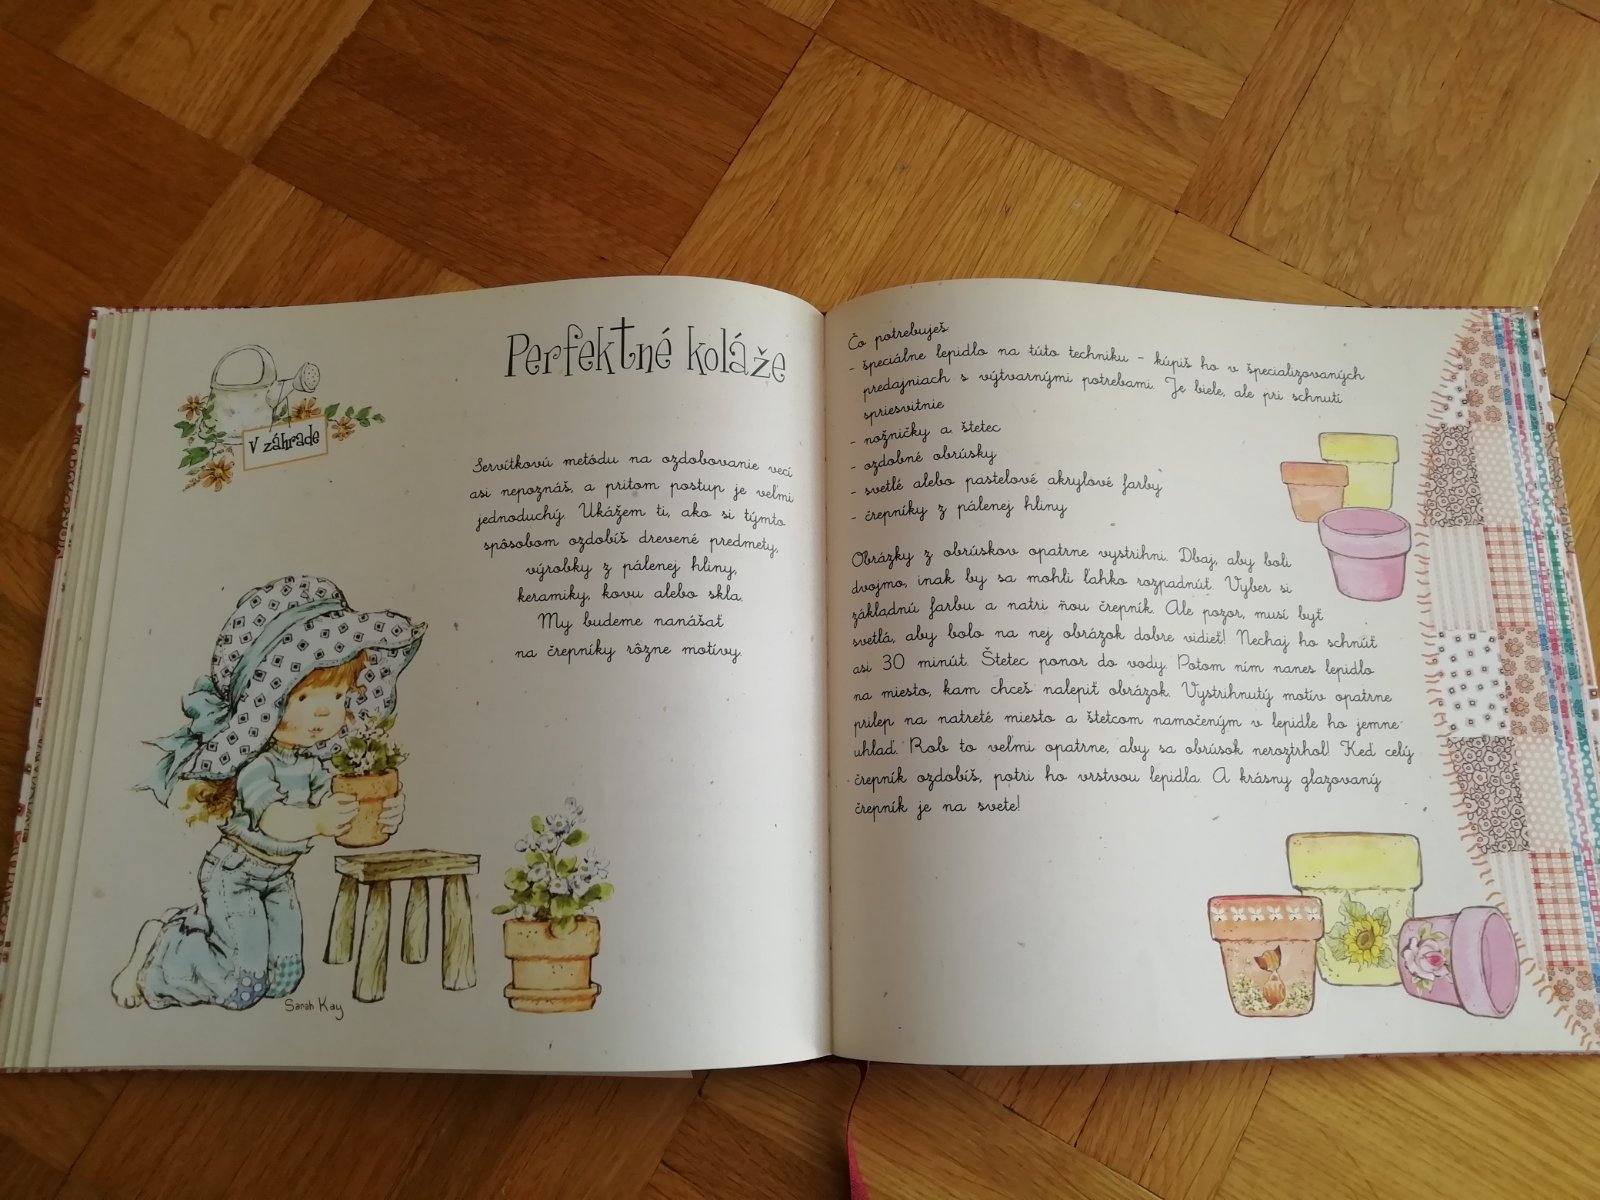 Perfektné koláže
V záhrade
Servítkovú metódu na ozdobovanie vecí
asi nepoznáš, a pritom postup je veľmi
jednoduchý. Ukážem ti, ako si týmto
spôsobom ozdobíš drevené predmety,
výrobky z pálenej hliny,
keramiky, kovu alebo skla.
My budeme nanášať
na črepníky rôzne motívy.
Sarah Kay
Čo potrebuješ:
- špeciálne lepidlo na túto techniku - kúpiš ho v špecializovaných
predajniach s výtvarnými potrebami. Je biele, ale pri schnutí
spriesvitnie
- nožničky a štetec
- ozdobné obrúsky
- svetlé alebo pastelové akrylové farby
- črepníky z pálenej hliny
Obrázky z obrúskov opatrne vystrihni. Dbaj, aby boli
dvojmo, inak by sa mohli ľahko rozpadnúť. Vyber si
základnú farbu a natri ňou črepník. Ale pozor, musí byť
svetlá, aby bolo na nej obrázok dobre vidieť! Nechaj ho schnúť
asi 30 minút. Štetec ponor do vody. Potom ním nanes lepidlo
na miesto, kam chceš nalepiť obrázok. Vystrihnutý motív opatrne
prilep na natreté miesto a štetcom namočeným v lepidle ho jemne
uhlaď. Rob to veľmi opatrne, aby sa obrúsok neroztrhol! Keď celý
črepník ozdobíš, potri ho vrstvou lepidla. A krásny glazovaný
črepník je na svete!